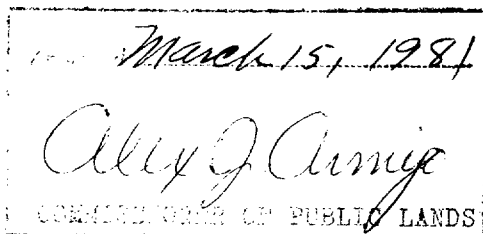 March 15, 1981
Alex J. Armijo
COMMISSIONER OF PUBLIC LANDS